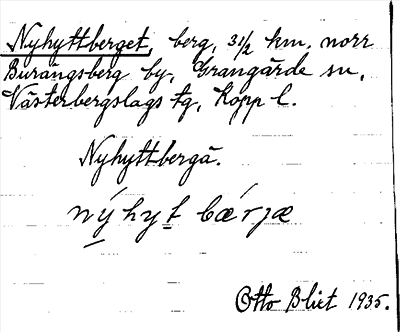 Nyhyttberget, berg, 3 1/2 km. norr
Burängsberg by, Grangärde sn,
Västerbergslags tg, Kopp l.
Nyhyttbergä.
nýhyt bǽrjæ
Otto Blixt 1935.